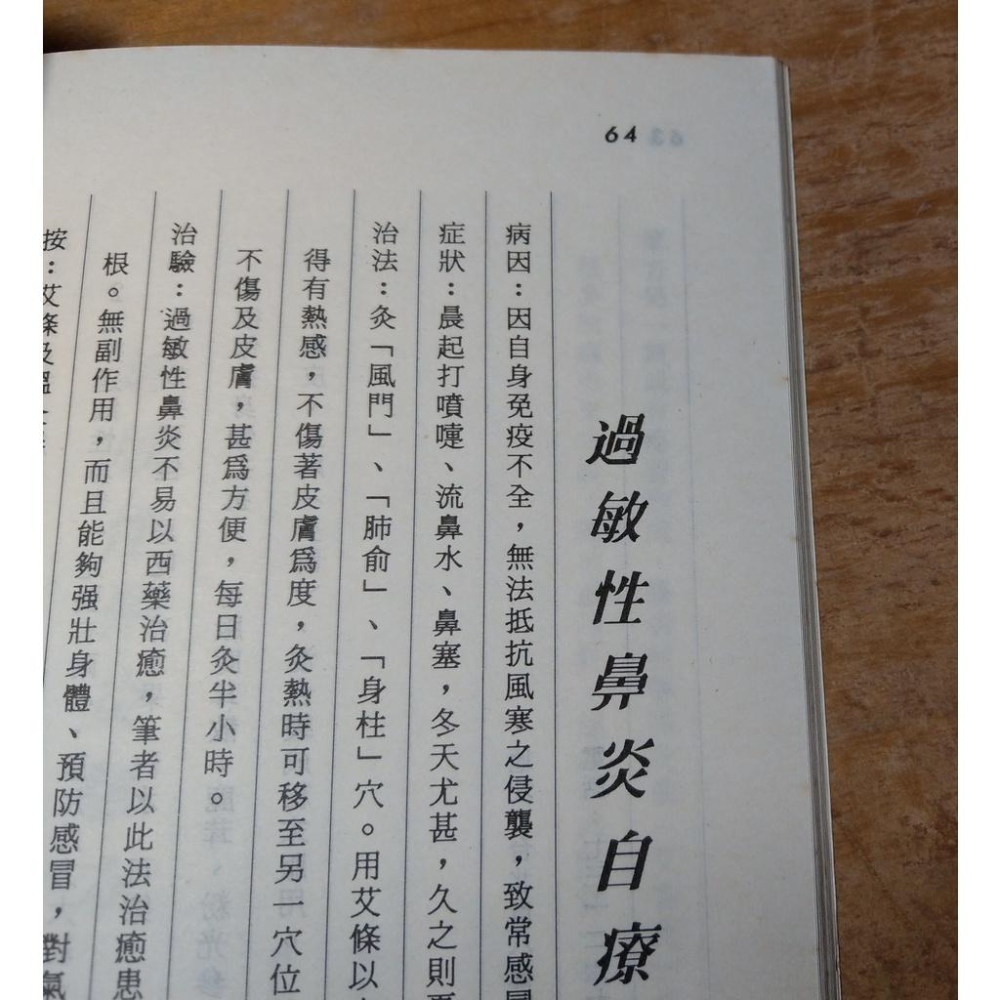 64
過敏性鼻炎自療
病因：因自身免疫不全，無法抵抗風寒之侵襲，致常感冒
症狀：晨起打噴嚏、流鼻水、鼻塞，冬天尤甚，久之則
治法：灸「風門」、「肺俞」、「身柱」穴。用艾條以
得有熱感，不傷著皮膚爲度，灸熱時可移至另一穴位
不傷及皮膚，甚爲方便，每日灸半小時。
治驗：過敏性鼻炎不易以西藥治癒，筆者以此法治癒患
根。無副作用，而且能夠强壯身體、預防感冒，對氣
按：艾條及溫